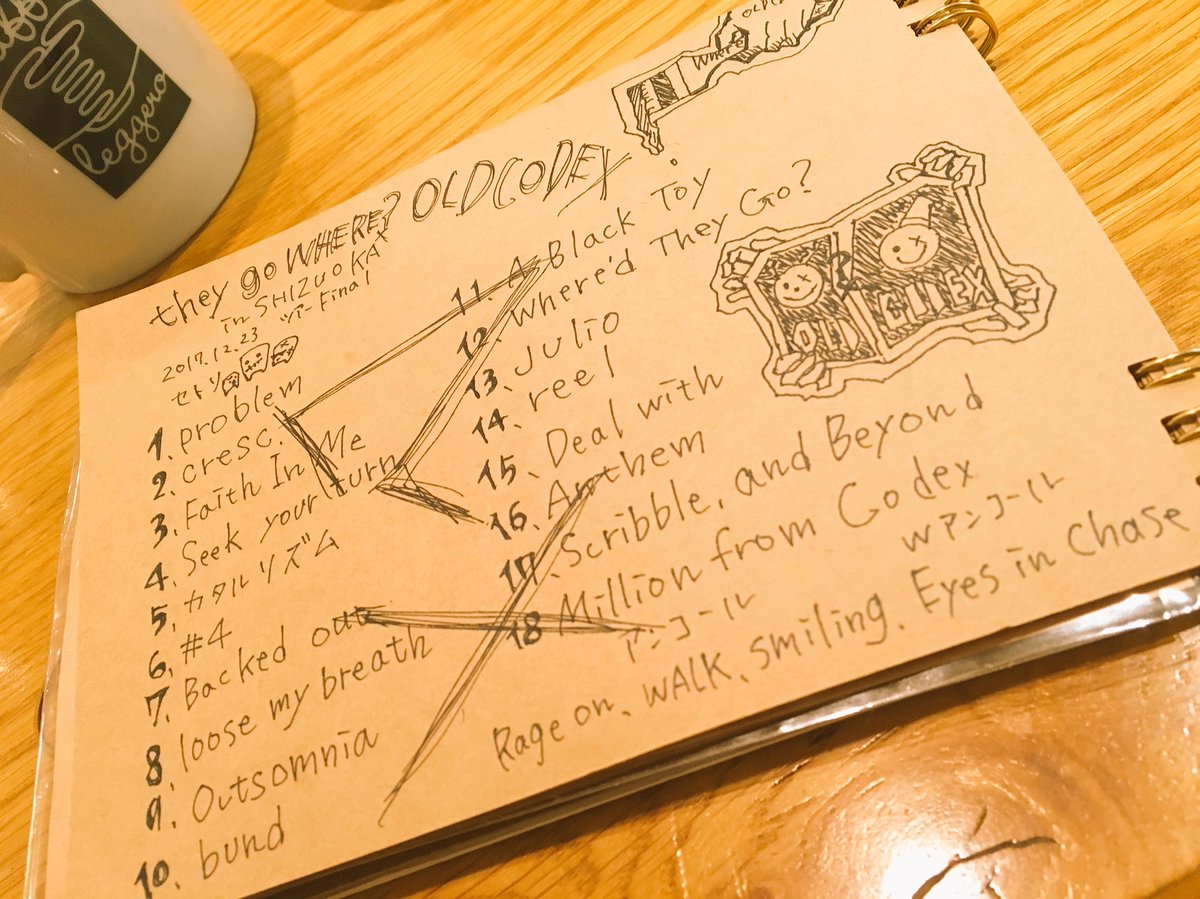 leggero
they go WHERE? OLDCODEX
in SHIZUOKA
ツアーFinal
2017.12.23
セトリ
1. problem
2. cresc.
3. Faith In Me
4. Seek your turn
5. カタルリズム
6. #4
7. Backed out
8. loose my breath
9. Outsomnia
10. bund
11. A Black Toy
12. Where'd They Go?
13. Julio
14. reel
15. Deal with
16. Anthem
17. Scribble, and Beyond
18 Million from Codex
アンコール
Wアンコール
Rage on、WALK、smiling. Eyes in chase
Where
OLD